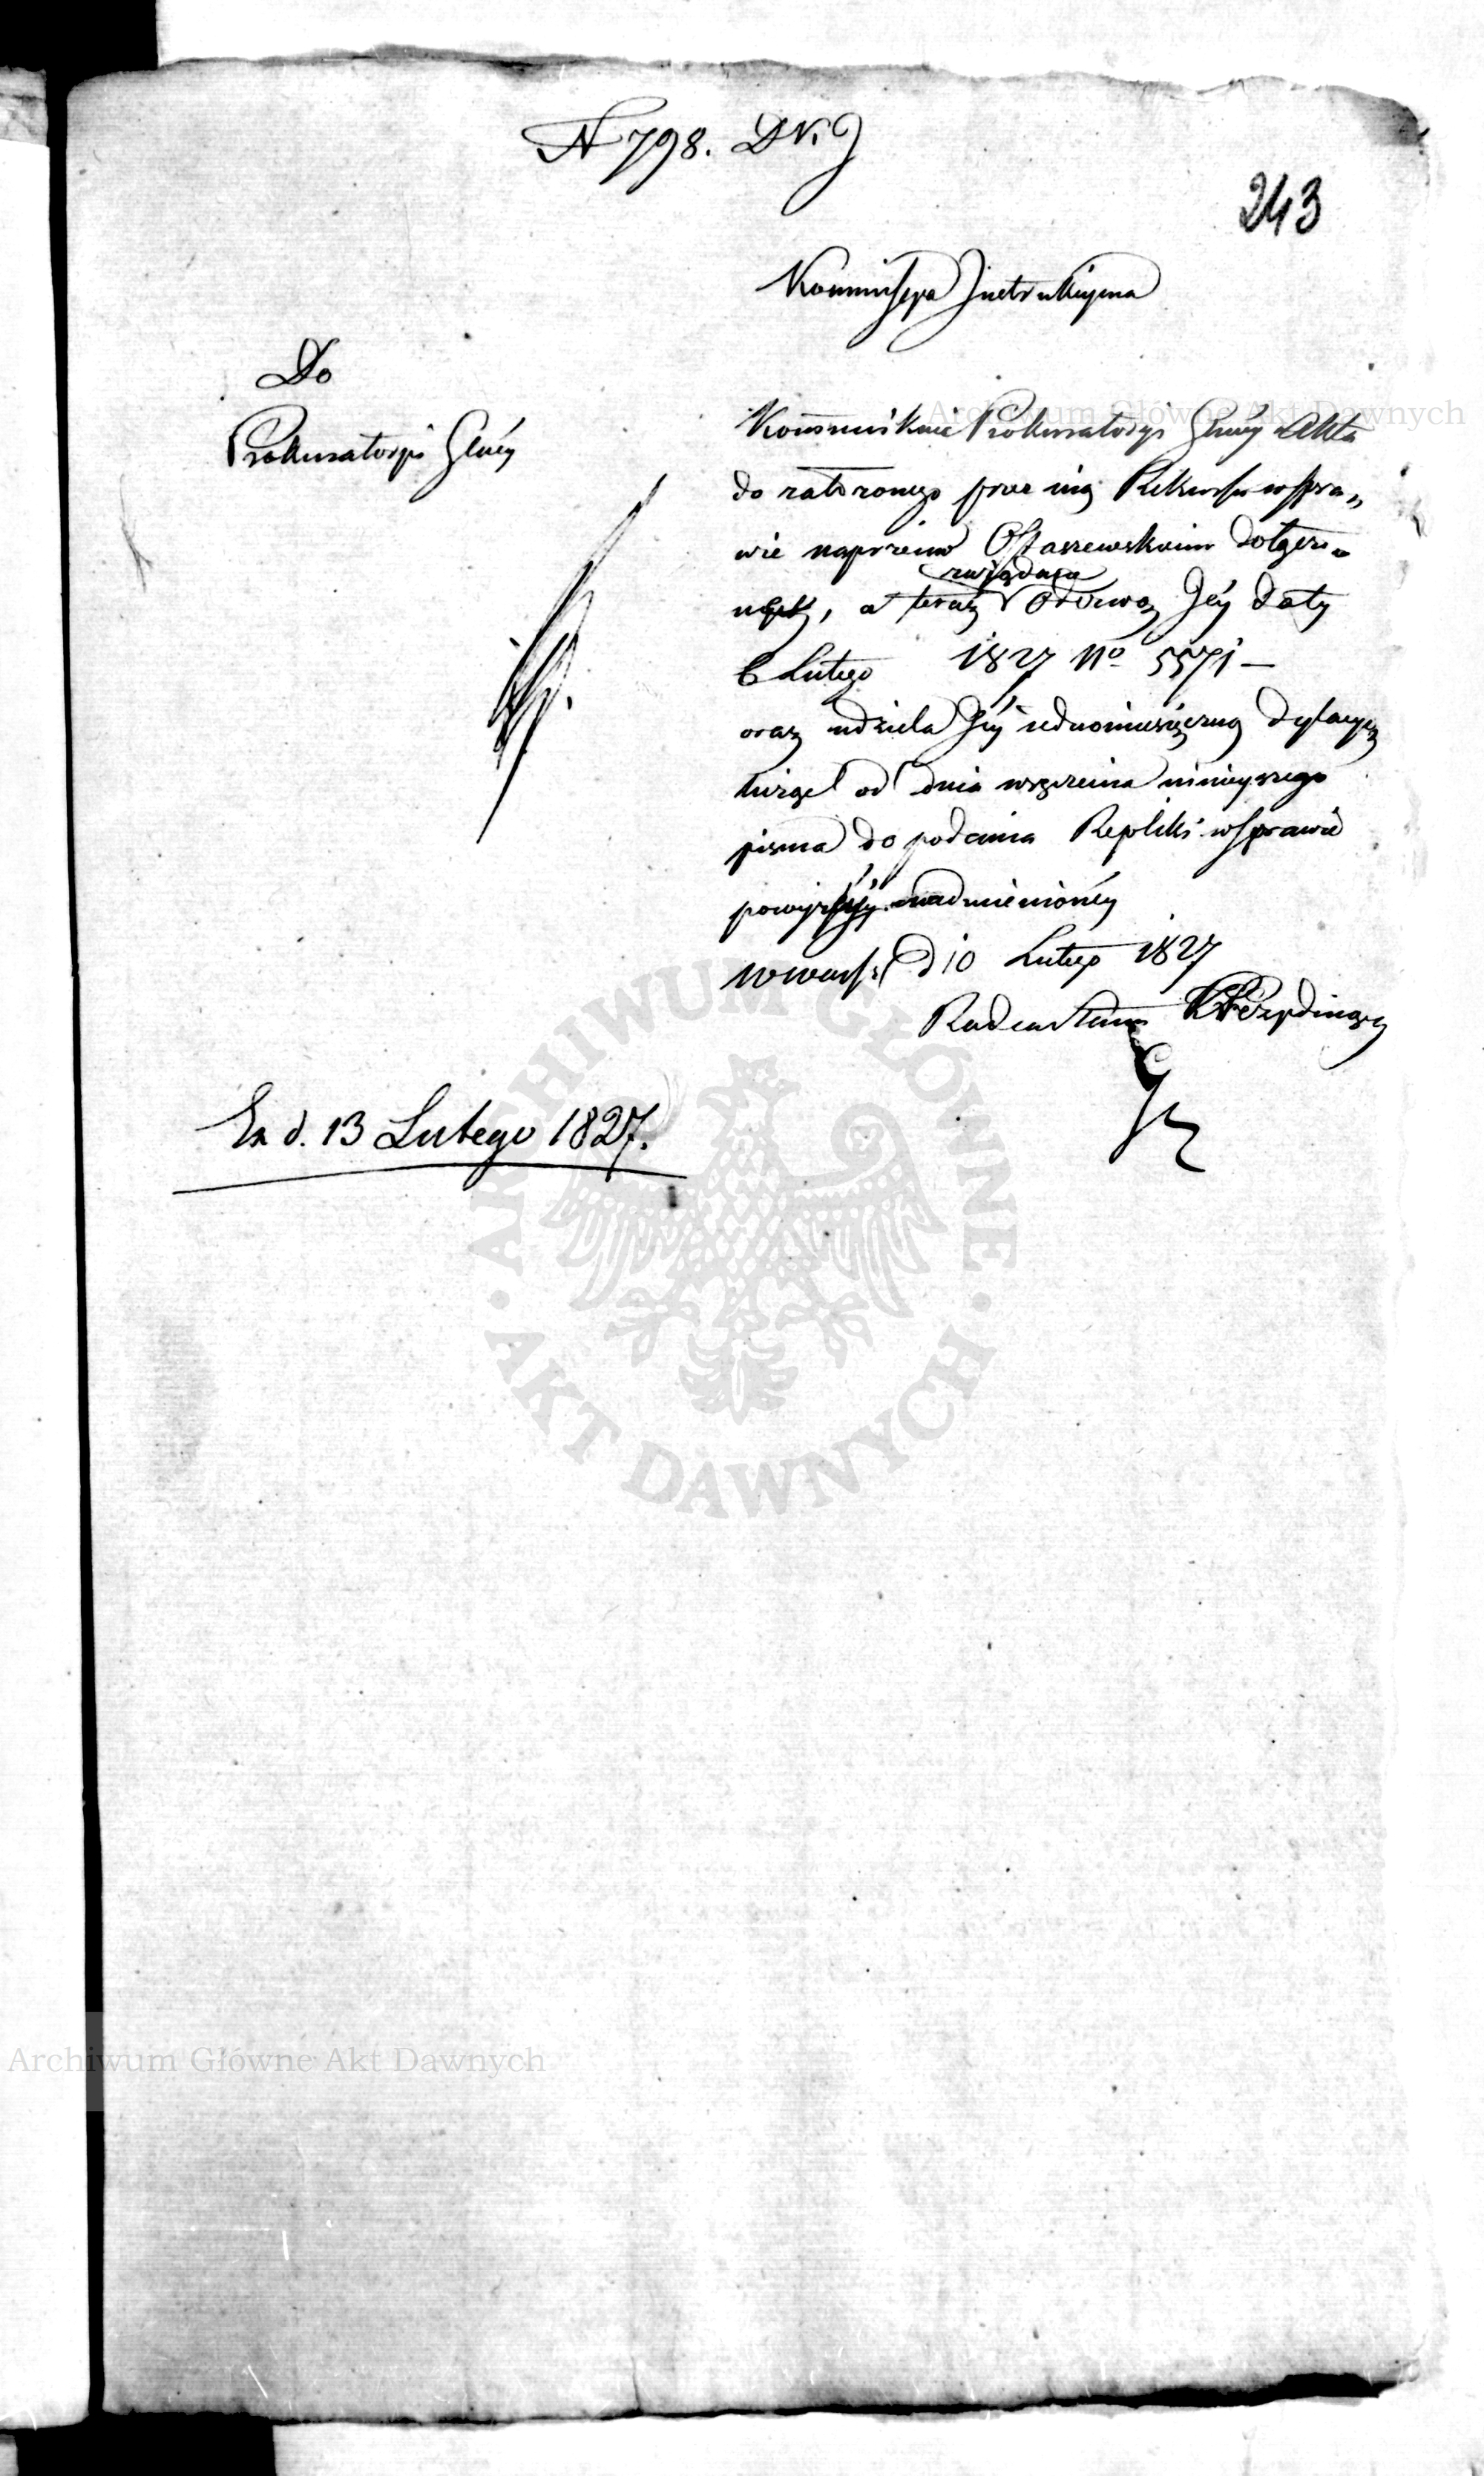 N 798. D N. J
243
Kommissya Instrukcyina
Do
Prokuratoryi Glney
Kommunikuie Prokuratoryi Glney Akta
do założonego przez nią Rekursu w spra„
wie naprzeciw Ostaszewskim dołączo„
nych, a teraz żądane Odezwą Jey daty
6 Lutego 1827 No 5571 —
oraz udziela Jey iednomiesięczną dylacyą
licząc od dnia wręczenia ninieyszego
pisma do podania Repliki w sprawie
powyższey nadmienioney
w Warsz. d 10 Lutego 1827
Radca Stanu Prezyduiący
Ex d. 13 Lutego 1827.
Archiwum Główne Akt Dawnych
ARCHIWUM GŁÓWNE AKT DAWNYCH
Archiwum Główne Akt Dawnych